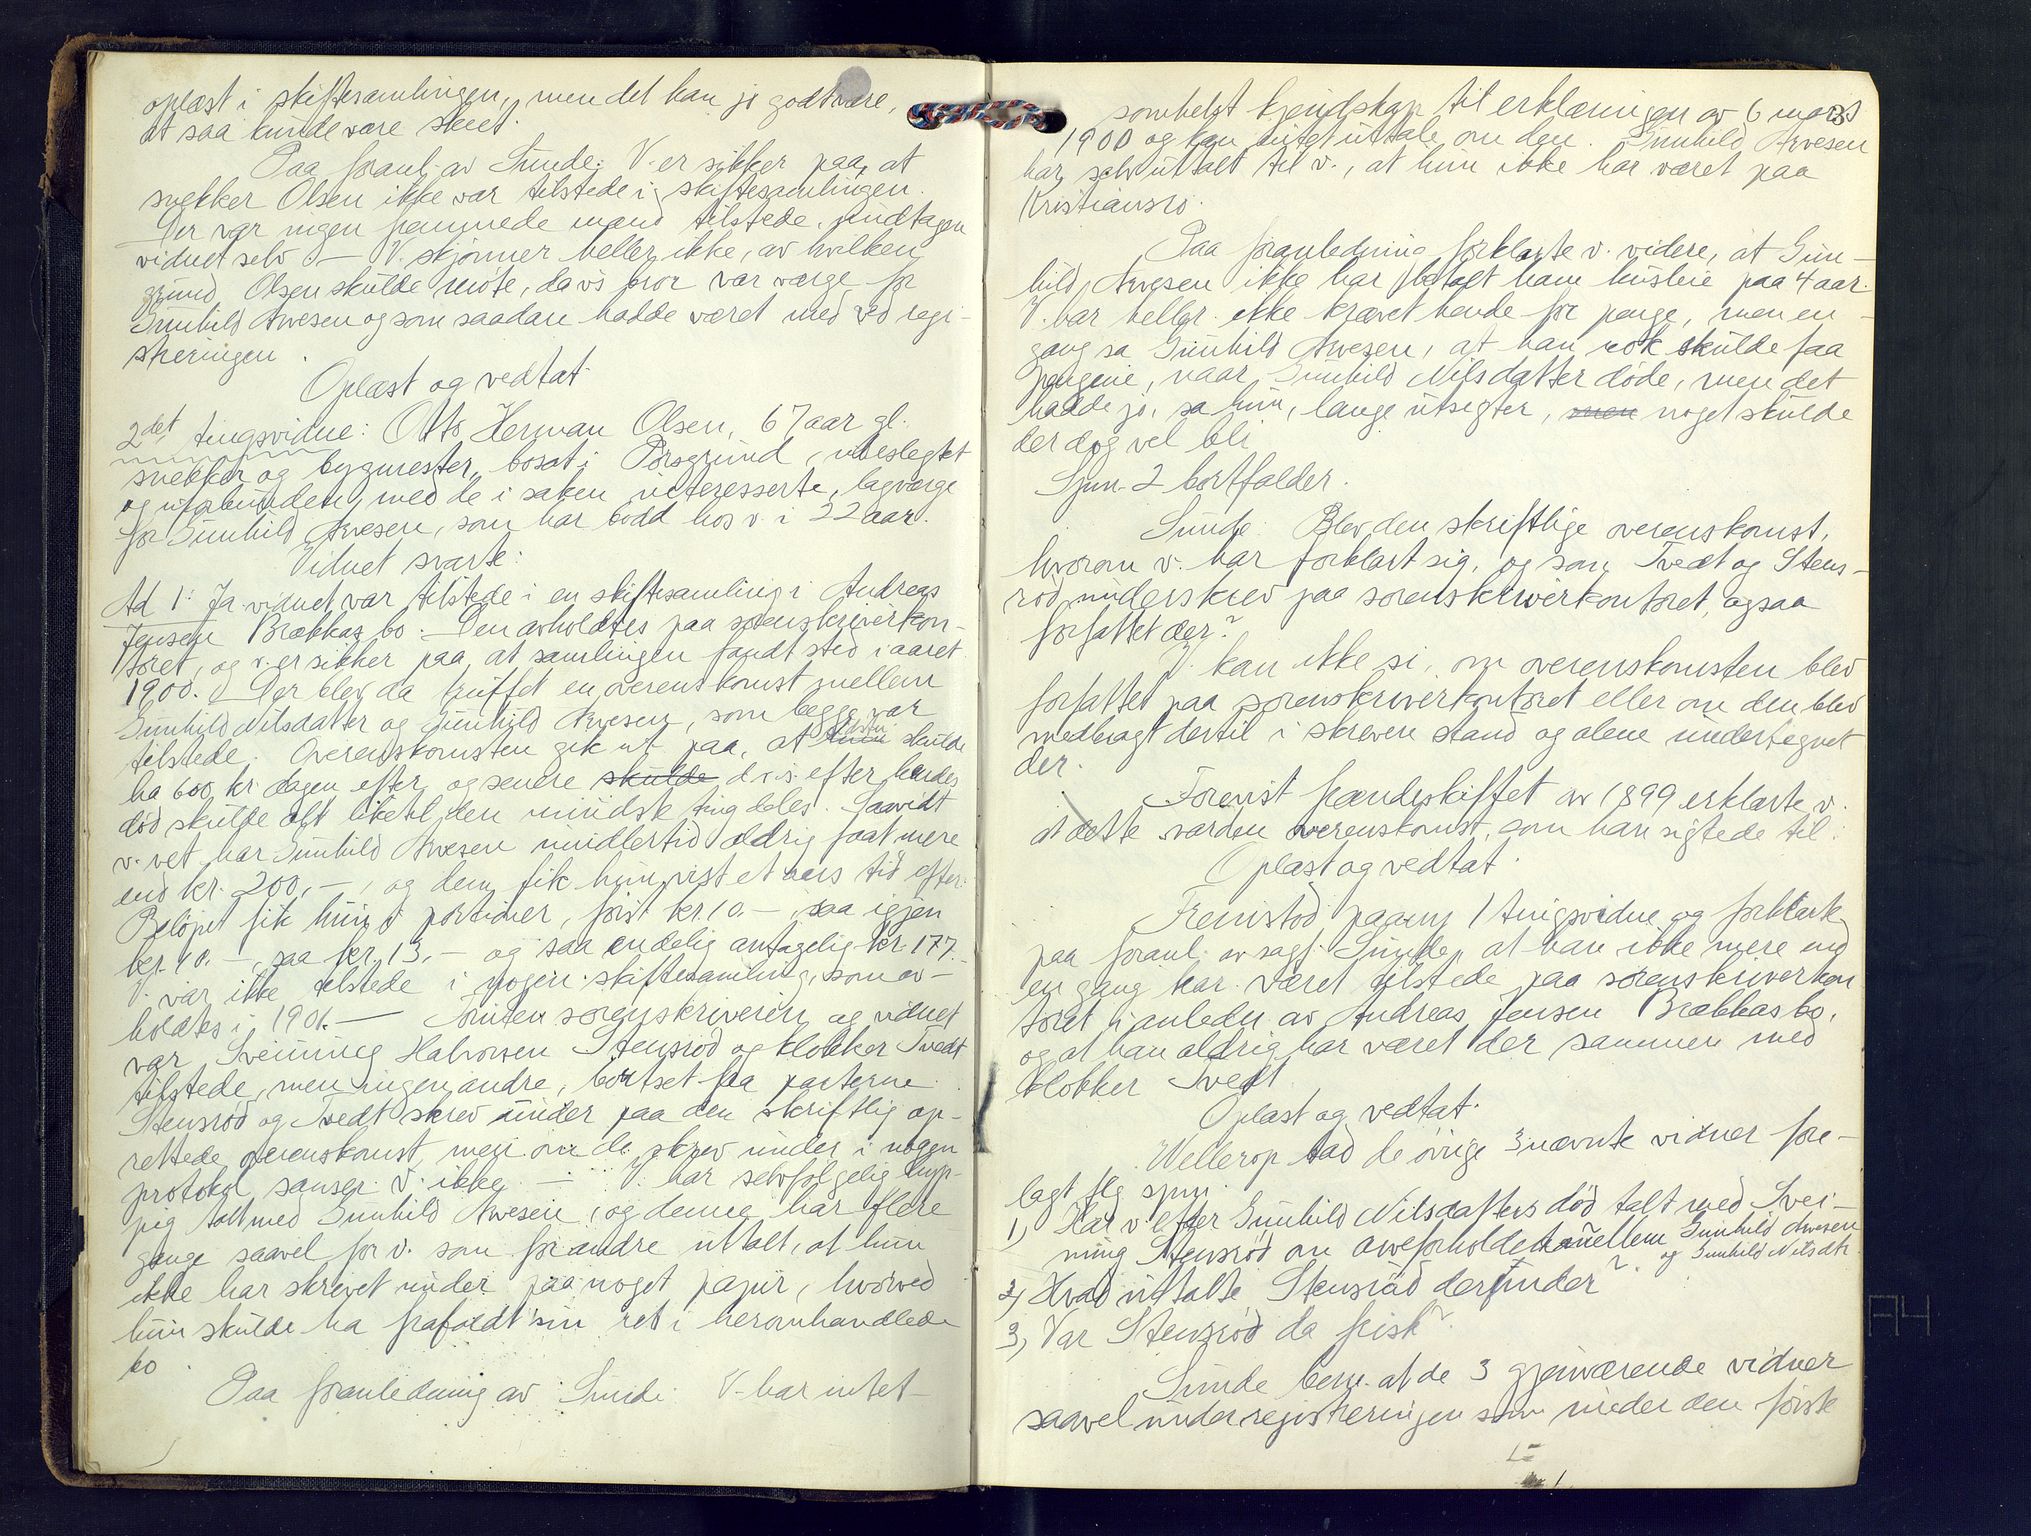 oplæst i skiftesamlingen, men det kan jo godt være,
at saa kunde være skeet.
Paa foranl. av Sunde: V. er sikker paa, at
snekker Olsen ikke var tilstede i skiftesamlingen.
Der var ingen fremmede mand tilstede, undtagen
vidnet selv — V. skjønner heller ikke, av hvilken
grund Olsen skulde møte, da v.s bror var værge for
Gunhild Arvesen og som saadan hadde været med ved regi-
streringen.
Oplæst og vedtat.
2det tingsvidne: Otto Herman Olsen, 67 aar gl.
snekker og bygmester, bosat i Porsgrund, ubeslegtet
og uforbunden med de i saken interesserte, lagværge
for Gunhild Arvesen, som har bodd hos v. i 22 aar.
Vidnet svarte:
Ad 1: Ja vidnet var tilstede i en skiftesamling i Andreas
Jensen Brækkas bo. Den avholdtes paa sorenskriverkon-
toret, og v. er sikker paa, at samlingen fandt sted i aaret
1900. Der blev da truffet en overenskomst mellem
Gunhild Nilsdatter og Gunhild Arvesen, som begge var
tilstede. Overenskomsten gik ut paa, at skulde
ha 600 kr. dagen efter, og senere skulde d.v.s. efter hendes
død skulde alt likt til den mindste ting deles. Saavidt
v. vet har Gunhild Arvesen imidlertid aldrig faat mere
end kr. 200,—, og dem fik hun vist et aars tid efter.
Beløpet fik hun i portioner, først kr. 10.—, saa igjen
kr. 10.—, saa kr. 13.— og saa endelig antagelig kr. 177.—
V. var ikke tilstede i nogen skiftesamling, som av-
holdtes i 1901.— Foruten sorenskriveren og vidnet
var Sveinung Halvorsen Stensrød og klokker Tvedt
tilstede, men ingen andre, bortset fra parterne.
Stensrød og Tvedt skrev under paa den skriftlig op-
rettede overenskomst, men om de skrev under i nogen
protokol, sanser v. ikke. — V. har selvfølgelig hyp-
pig talt med Gunhild Arvesen, og denne har flere
gange saavel for v. som for andre uttalt, at hun
ikke har skrevet under paa noget papir, hvorved
hun skulde ha frafaldt sin ret i heromhandlede
bo.
Paa foranledning av Sunde: V. har intet
somhelst kjendskap til erklæringen av 6 marts
1900 og kan intet uttale om den. Gunhild Arvesen
har selv uttalt til v., at hun ikke har været paa
Kristiansro.
Paa foranledning forklarte v. videre, at Gun-
hild Arvesen ikke har betalt ham husleie paa 4 aar.
V. har heller ikke krævet hende for penge, men en-
gang sa Gunhild Arvesen, at han nok skulde faa
pengene, naar Gunhild Nilsdatter døde, men det
hadde jo, sa hun, lange utsigter, men noget skulde
der dog vel bli.
Spm. 2 bortfalder.
Sunde: Blev den skriftlige overenskomst,
hvorom v. har forklart sig, og som Tvedt og Stens-
rød underskrev paa sorenskriverkontoret, ogsaa
forfattet der?
V. kan ikke si, om overenskomsten blev
forfattet paa sorenskriverkontoret eller om den blev
medbragt dertil i skreven stand og alene undertegnet
der.
Forevist frændeskiftet av 1899 erklarte v.
at dette var den overenskomst, som han sigtede til.
Oplæst og vedtat.
Fremstod paany 1 tingsvidne og forklarte
paa foranl. av sagf. Sunde, at han ikke mere end
en gang har været tilstede paa sorenskriverkon
toret i anledn. av Andreas Jensen Brækkas bo,
og at han aldrig har været der sammen med
klokker Tvedt.
Oplæst og vedtat.
Wellerop bad de øvrige 3 nævnte vidner fore-
lagt flg. spm.
1, Har v. efter Gunhild Nilsdatters død talt med Svei-
nung Stensrød om arveforholdet mellem Gunhild Arvesen
og Gunhild Nilsdtr.
2, Hvad uttalte Stensrød derunder?
3, Var Stensrød da frisk?
Sunde bem. at de 3 gjenværende vidner
saavel under registreringen som under den første